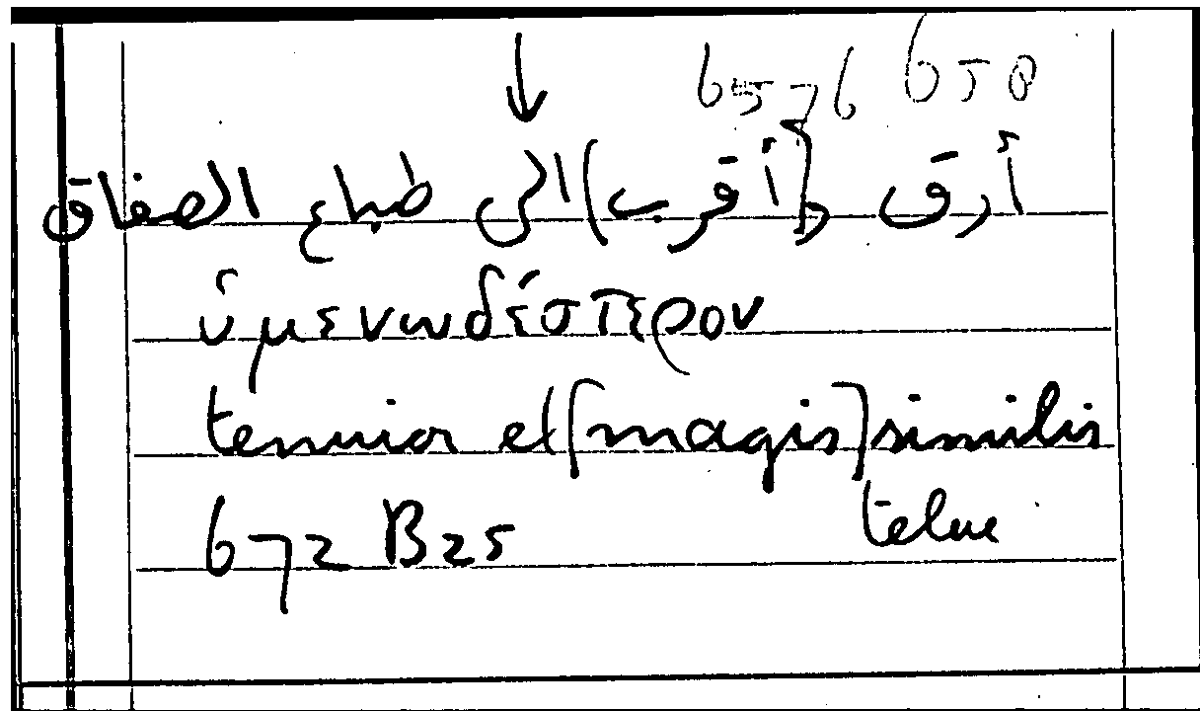 6576 650
أرق [وأقرب] الى طباع الصفاق
ὑμενωδέστερον
tenuior et [magis] similis
telae
672 B25